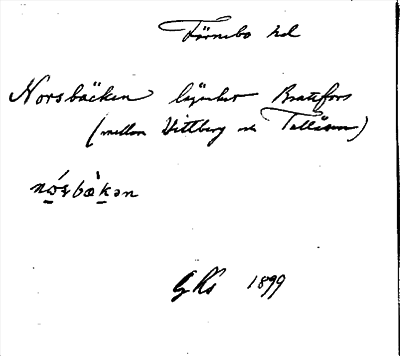 Färnebo hd
Norsbäcken lägenhet Bratefors
(mellan Vittberg och Tallåsen)
nɷ́ʂbæ̀kən
GKs 1899